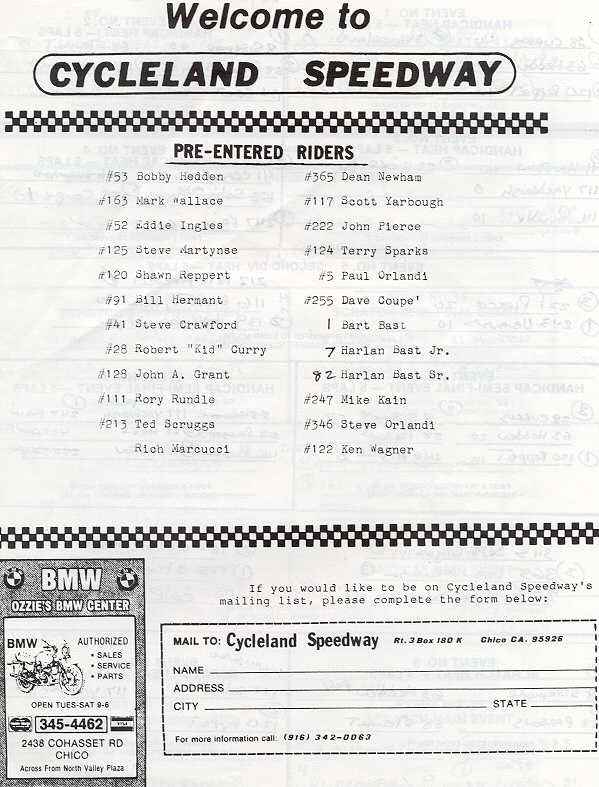 Welcome to
CYCLELAND SPEEDWAY
PRE-ENTERED RIDERS
#53 Bobby Hedden
#163 Mark Wallace
#52 Eddie Ingles
#125 Steve Martynse
#120 Shawn Reppert
#91 Bill Hermant
#41 Steve Crawford
#28 Robert "Kid" Curry
#128 John A. Grant
#111 Rory Rundle
#213 Ted Scruggs
Rich Marcucci
#365 Dean Newham
#117 Scott Yarbough
#222 John Pierce
#124 Terry Sparks
#5 Paul Orlandi
#255 Dave Coupe'
1 Bart Bast
7 Harlan Bast Jr.
82 Harlan Bast Sr.
#247 Mike Kain
#346 Steve Orlandi
#122 Ken Wagner
BMW
OZZIE'S BMW CENTER
BMW
AUTHORIZED
• SALES
• SERVICE
• PARTS
OPEN TUES-SAT 9-6
345-4462
2438 COHASSET RD
CHICO
Across From North Valley Plaza
If you would like to be on Cycleland Speedway's
mailing list, please complete the form below:
MAIL TO: Cycleland Speedway Rt. 3 Box 180 K Chico CA. 95926
NAME
ADDRESS
CITY STATE
For more information call: (916) 342-0063